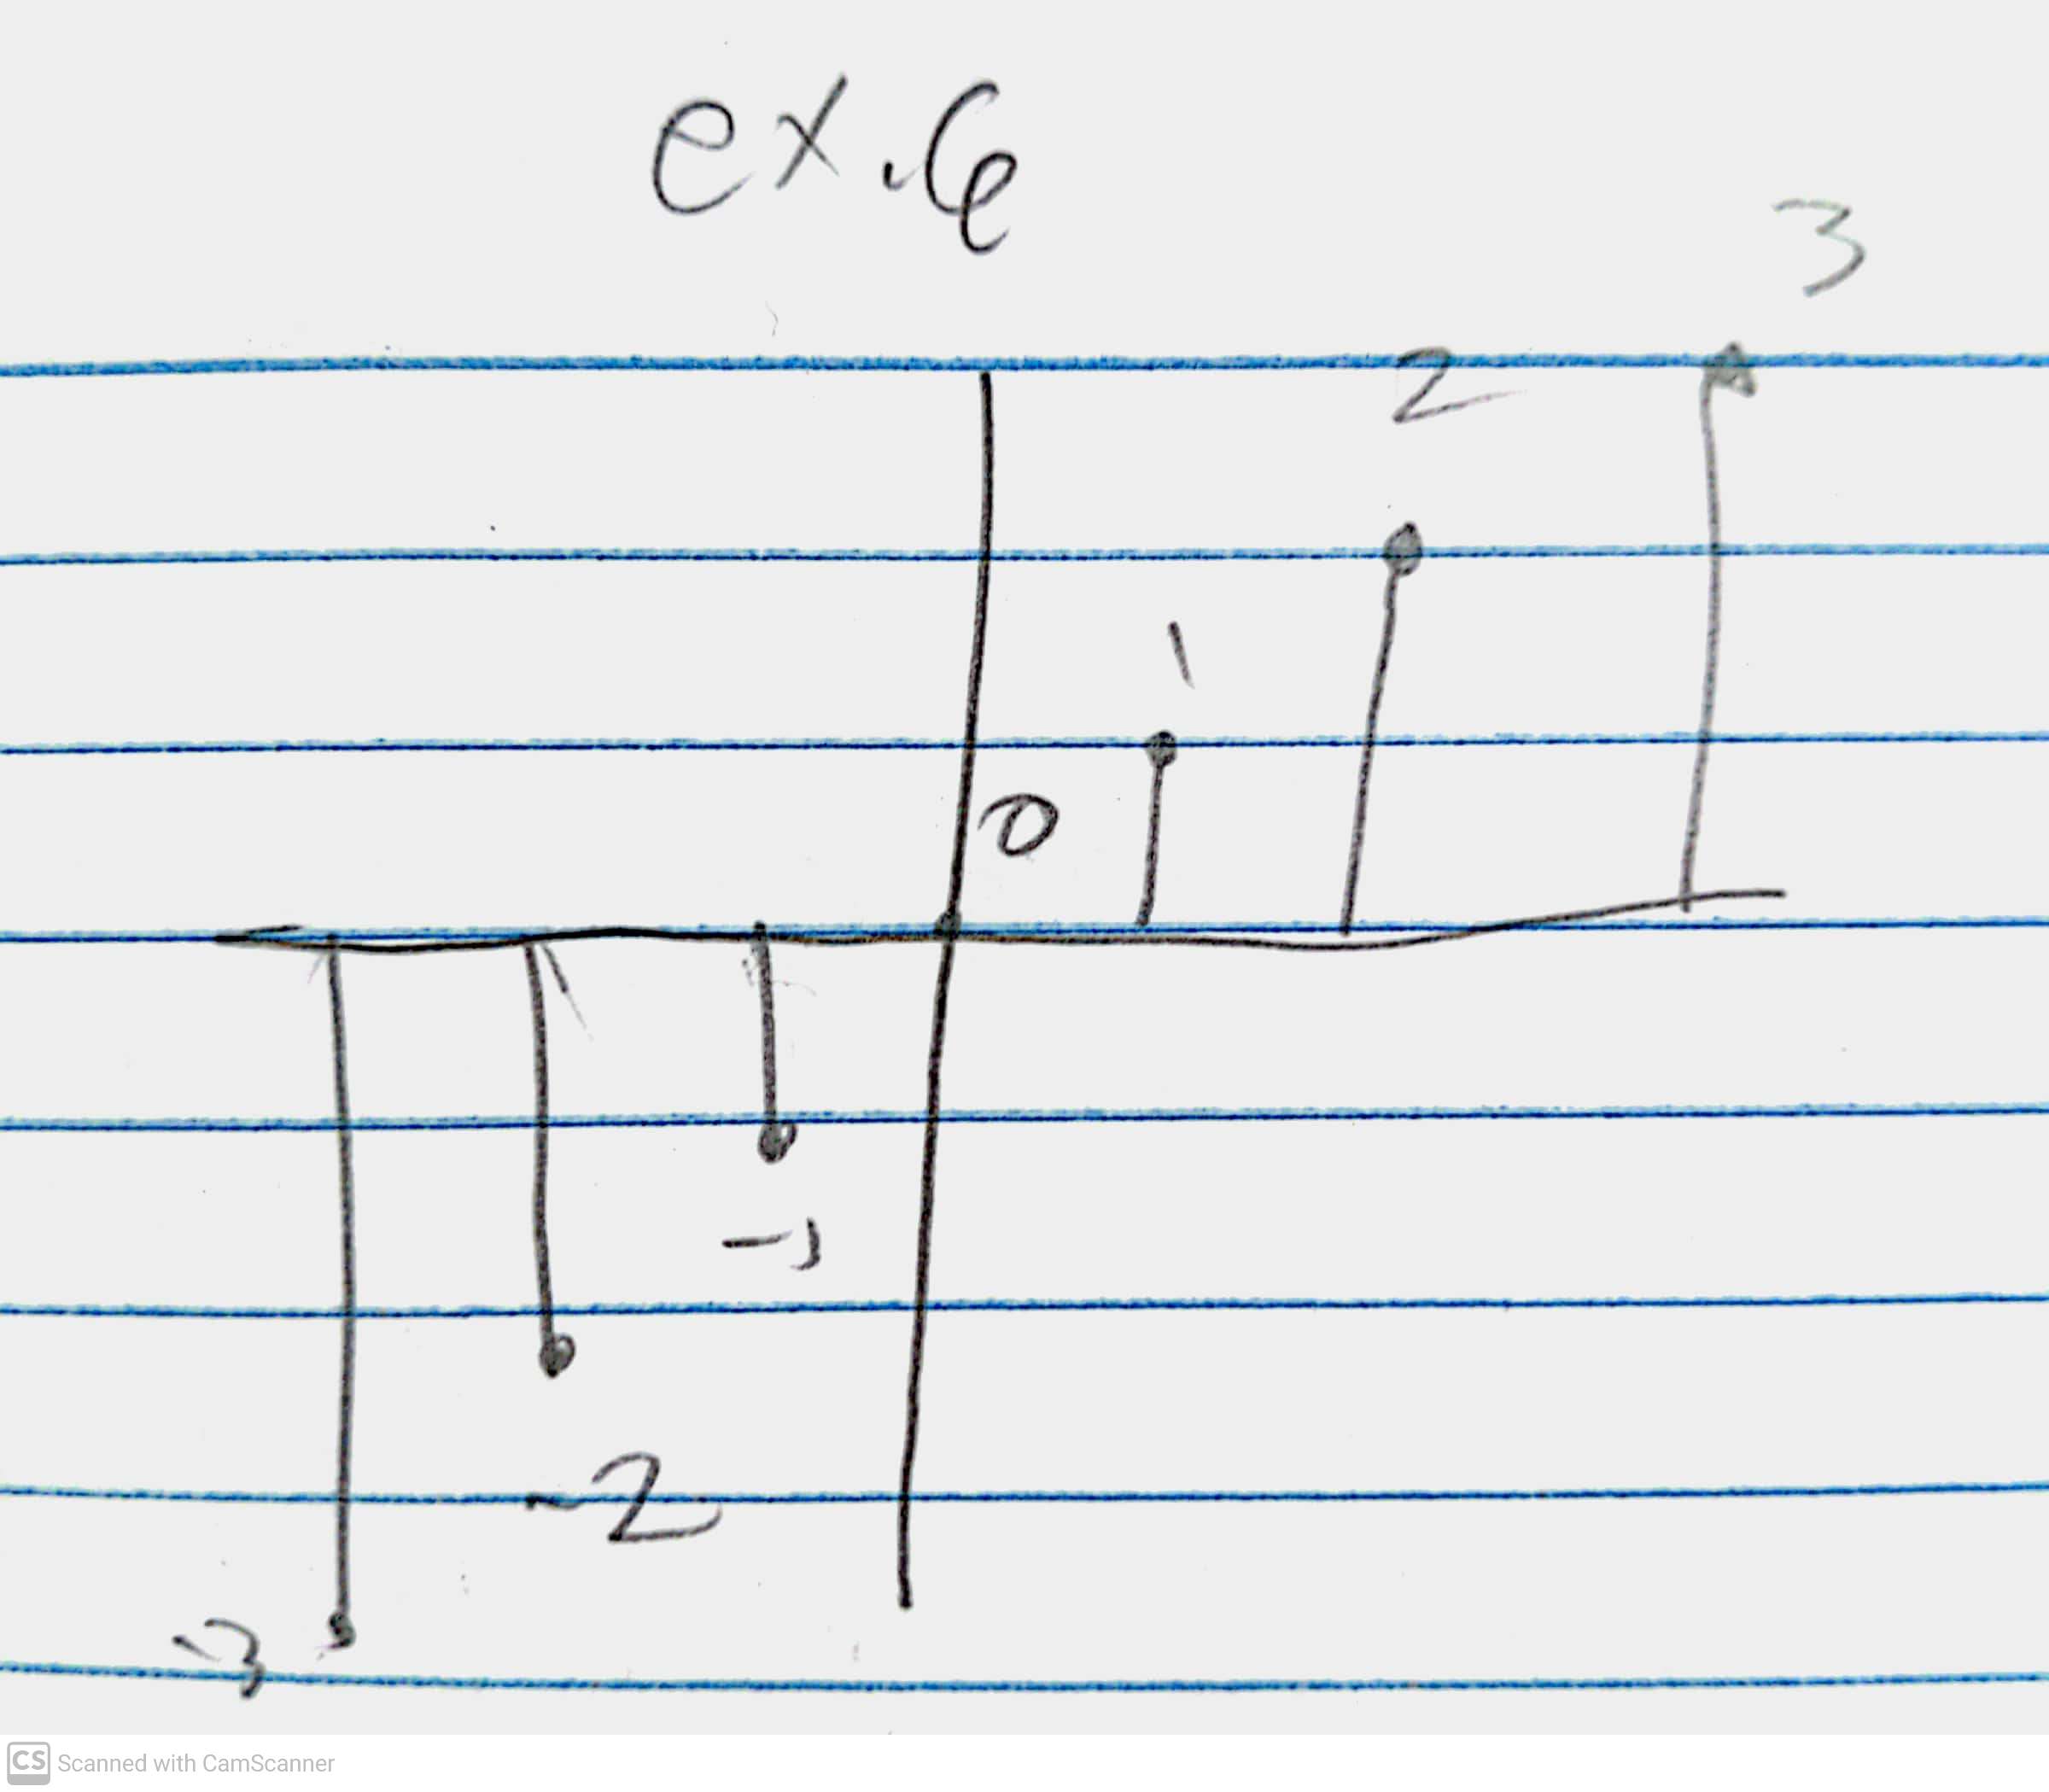 ex.6
3
2
1
0
-1
-2
-3
CS Scanned with CamScanner